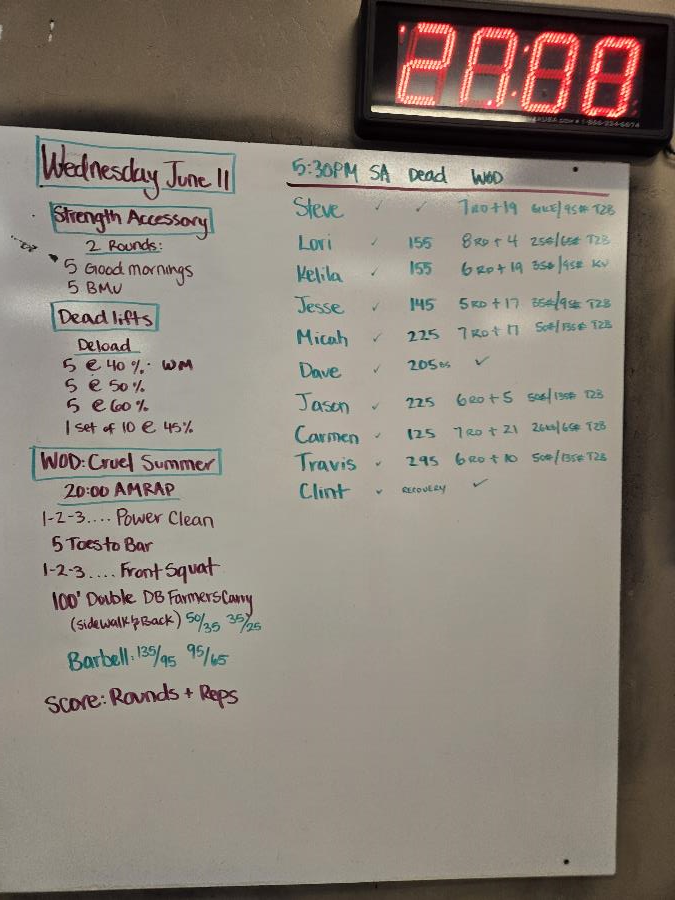 20:00
Wednesday June 11
Strength Accessory
2 Rounds:
5 Good mornings
5 BMU
Deadlifts
Deload
5 @ 40%. WM
5 @ 50%
5 @ 60%
1 set of 10 @ 45%
WOD: Cruel Summer
20:00 AMRAP
1-2-3.... Power Clean
5 Toes to Bar
1-2-3.... Front Squat
100' Double DB Farmers Carry
(sidewalk & Back) 50/35 35/25
Barbell: 135/95 95/65
Score: Rounds + Reps
5:30PM SA Dead WOD
Steve ✓ ✓ 7RD+19 95# T2B
Lori ✓ 155 8RD+4 25#/65# T2B
Kelila ✓ 155 6RD+19 35#/95#
Jesse ✓ 145 5RD+17 35#/95# T2B
Micah ✓ 225 7RD+17 50#/135# T2B
Dave ✓ 205 ✓
Jason ✓ 225 6RD+5 50#/135# T2B
Carmen ✓ 125 7RD+21 65# T2B
Travis ✓ 295 6RD+10 50#/135# T2B
Clint ✓ RECOVERY ✓